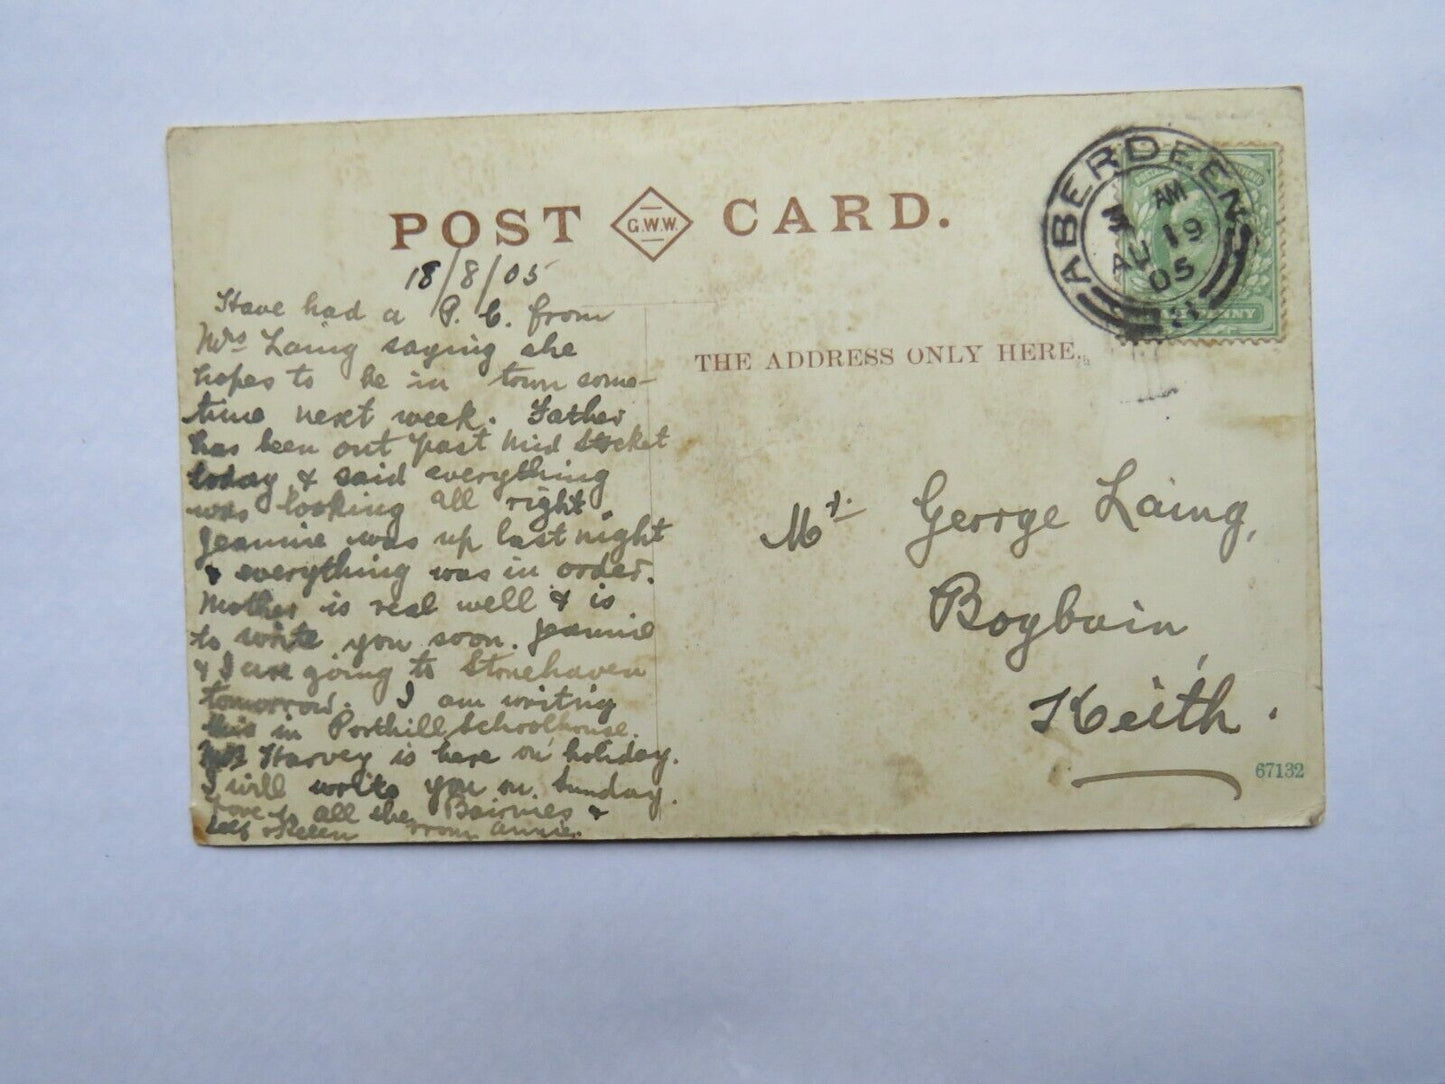 POST G.W.W. CARD.
18/8/05
Have had a P. C. from
Mrs Laing saying she
hopes to be in town some-
time next week. Father
has been out past Mid Stocket
today & said everything
was looking all right.
Jeannie was up last night
& everything was in order.
Mother is real well & is
to write you soon. Jeannie
& I are going to Stonehaven
tomorrow. I am writing
this in Porthill Schoolhouse.
Harvey is here on holiday.
I will write you on Sunday.
Love to all the Bairnies &
self & Helen from Annie.
ABERDEEN
AM
AU 19
05
THE ADDRESS ONLY HERE.
Mr George Laing,
Bogbain,
Keith.
67132